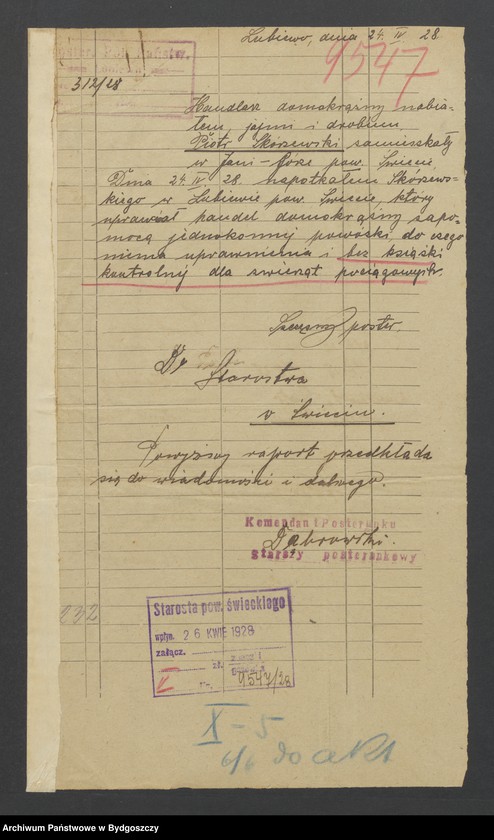 Lubiewo, dnia 24. IV 28.
9547
312/28
Handlarz domokrążny nabia-
łem jajmi i drobiem
Piotr Skórzewski zamieszkały
w Jani-Górze pow. Świecie
Dnia 24. IV 28. napotkałem Skórzews-
kiego w Lubiewie pow. Świecie, który
uprawiał handel domokrążny zapo-
mocą jednokonnej powózki do czego
niema uprawnienia i bez książki
kontrolnej dla zwierząt pociągowych.
poster.
Do
Starostwa
w Świeciu.
Powyższy raport przedkłada
się do wiadomości i dalszego.
Komendant Posterunku
Dąbrowski.
Starszy posterunkowy
232
Starosta pow. świeckiego
wpłyn. 26 KWIE 1928
załącz.
zł.
V
9547/28
X-5
6/6 do akt
Archiwum Państwowe w Bydgoszczy